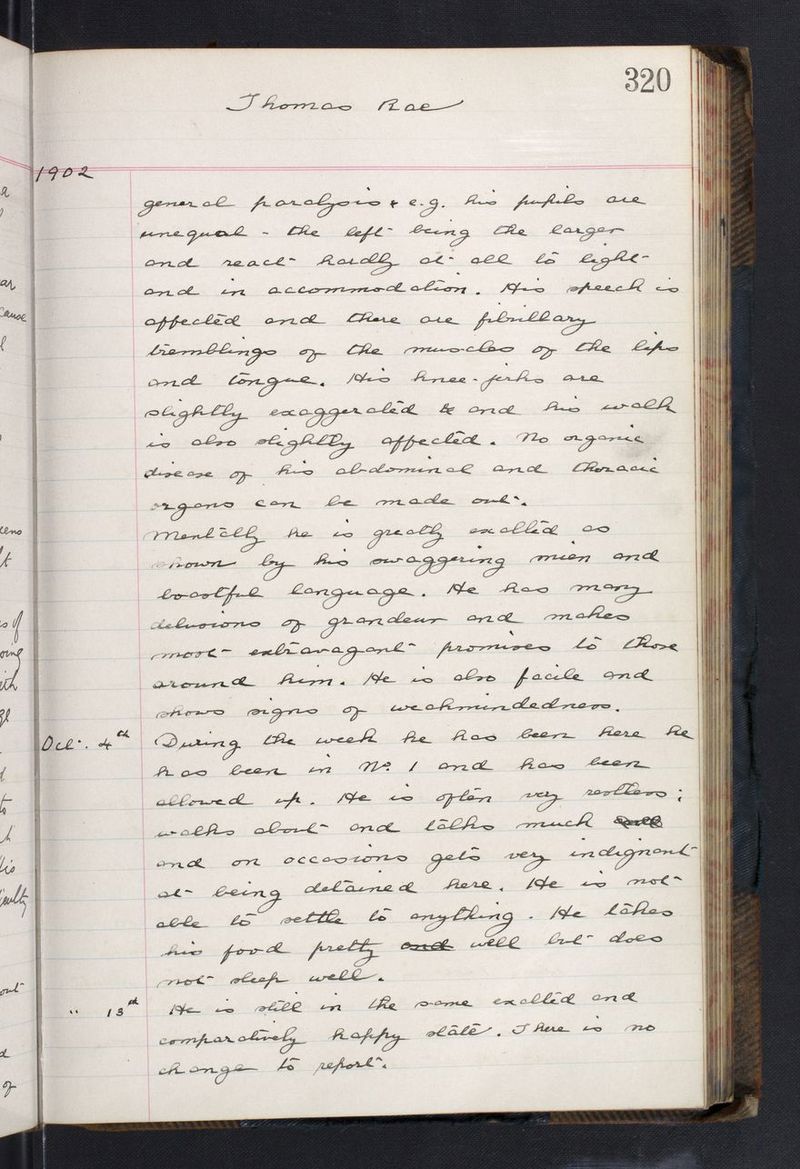 320
Thomas Rae
1902
general paralysis & e.g. his pupils are
unequal - the left being the larger
and react hardly at all to light
and in accommodation. His speech is
affected and there are fibrillary
tremblings of the muscles of the lips
and tongue. His knee-jerks are
slightly exaggerated & and his walk
is also slightly affected. No organic
disease of his abdominal and thoracic
organs can be made out.
Mentally he is greatly exalted as
shown by his swaggering mien and
boastful language. He has many
delusions of grandeur and makes
most extravagant promises to those
around him. He is also facile and
shows signs of weakmindedness.
Oct. 4th During the week he has been here he
has been in No. 1 and has been
allowed up. He is often very restless;
walks about and talks much
and on occasions gets very indignant
at being detained here. He is not
able to settle to anything. He takes
his food pretty and well but does
not sleep well.
" 13th He is still in the same exalted and
comparatively happy state. There is no
change to report.